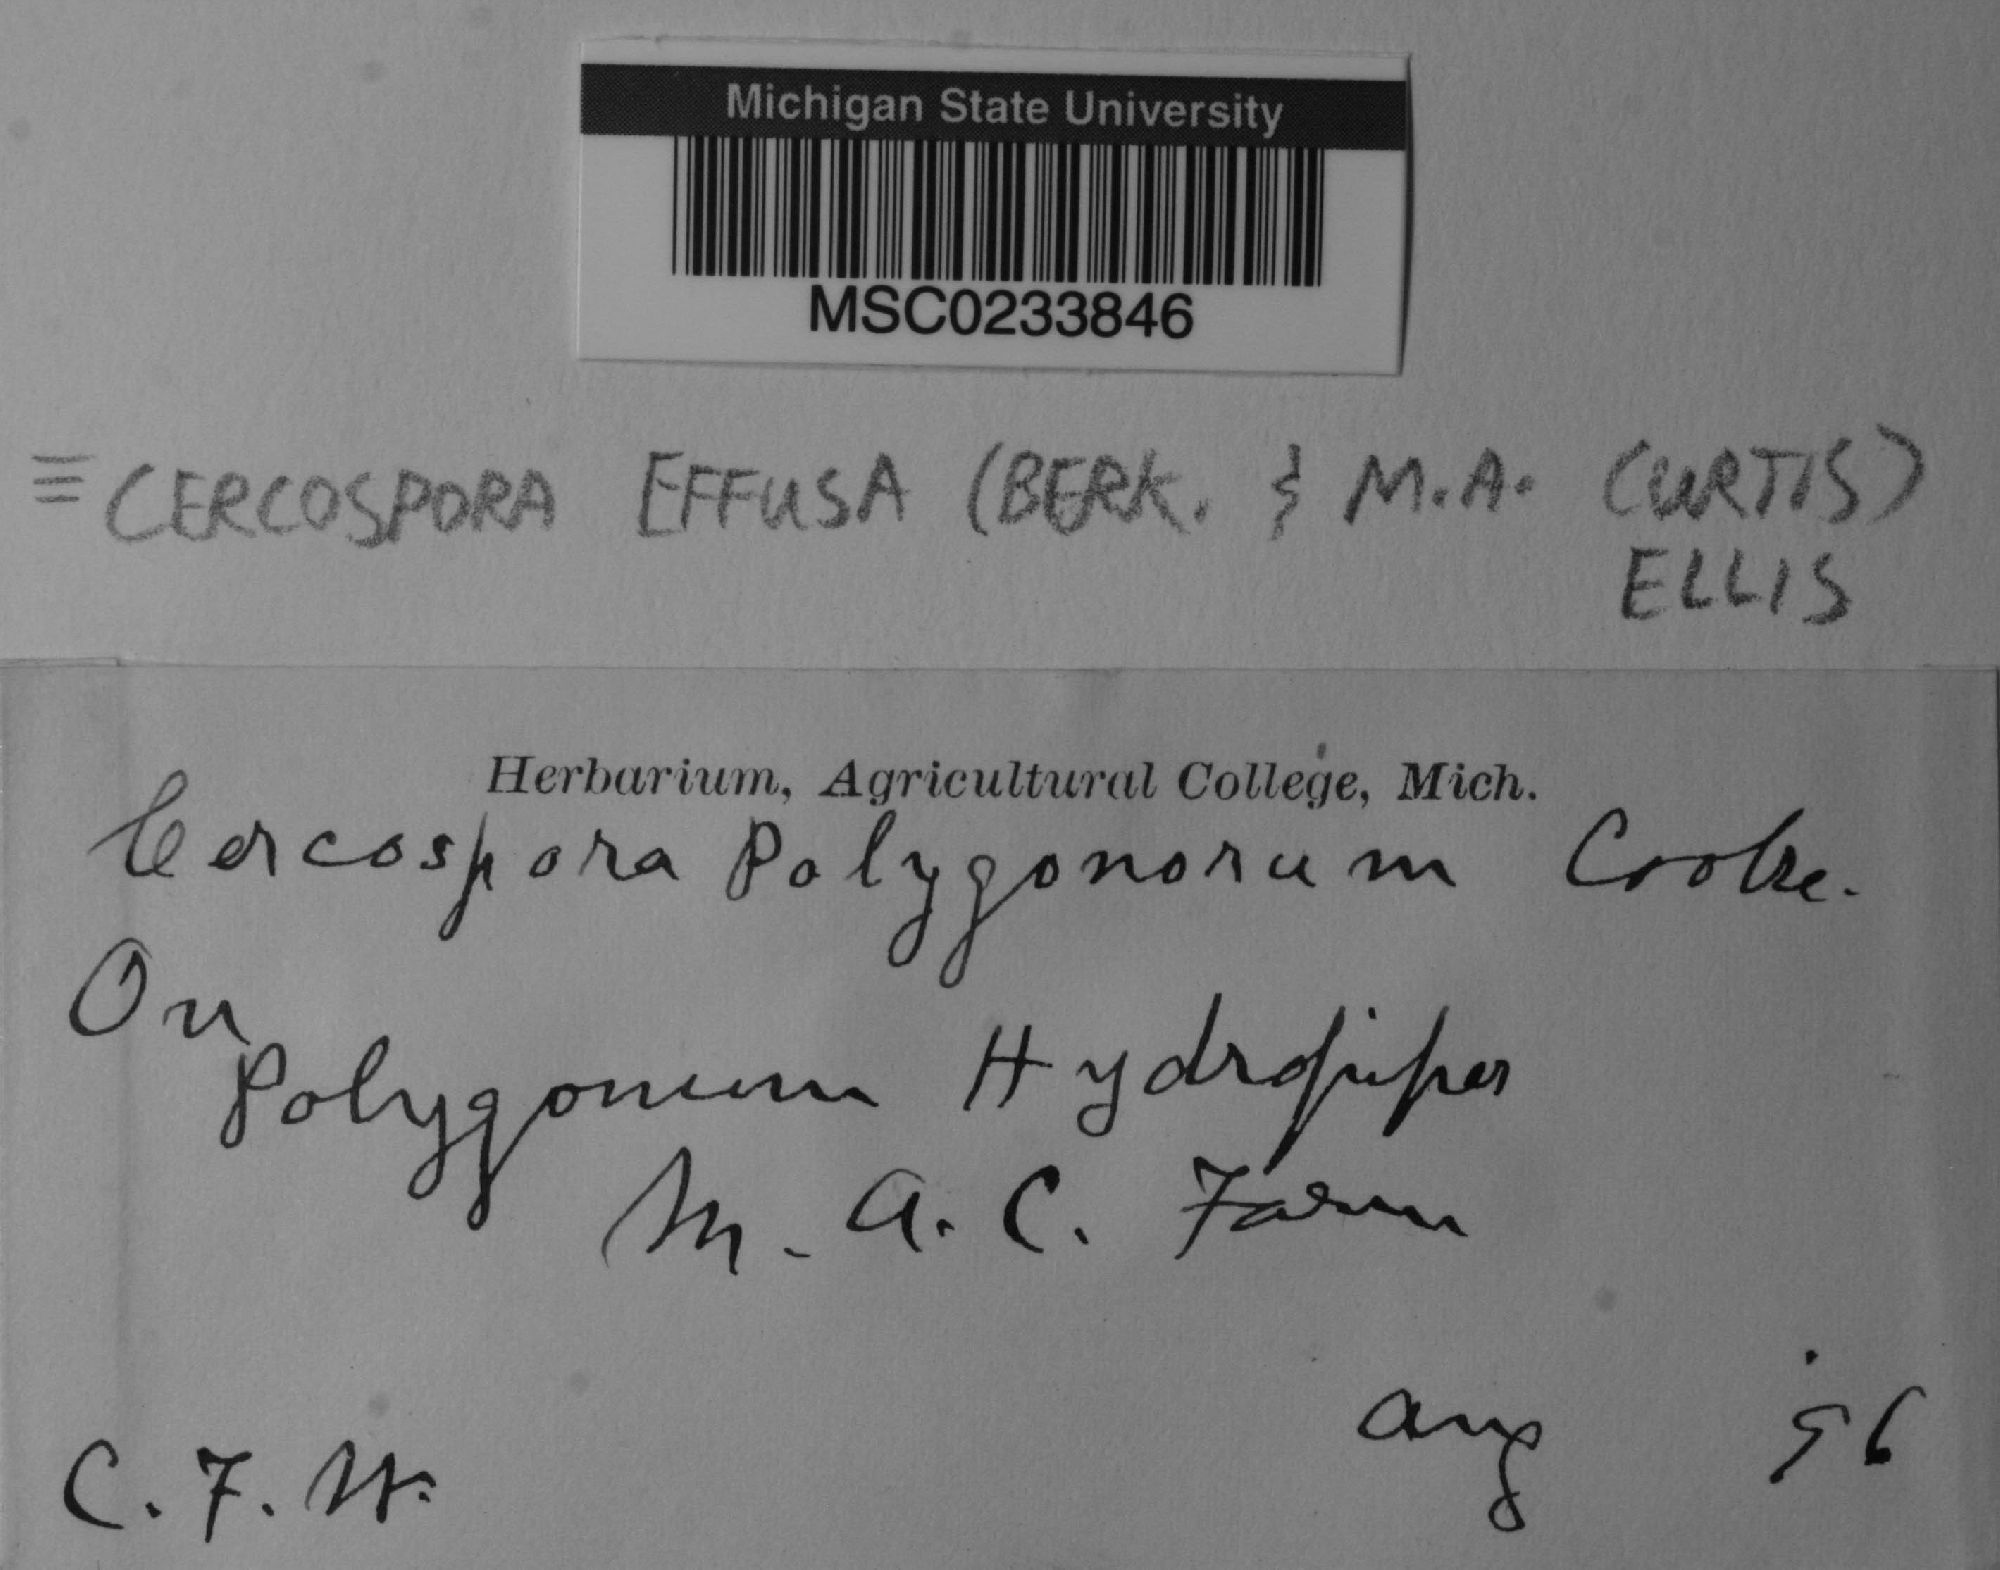 Michigan State University
MSC0233846
≡ CERCOSPORA EFFUSA (BERK. & M.A. CURTIS)
ELLIS
Herbarium, Agricultural College, Mich.
Cercospora Polygonorum Cooke.
On
Polygonum Hydropiper
M. A. C. Farm
Aug '96
C. F. W.